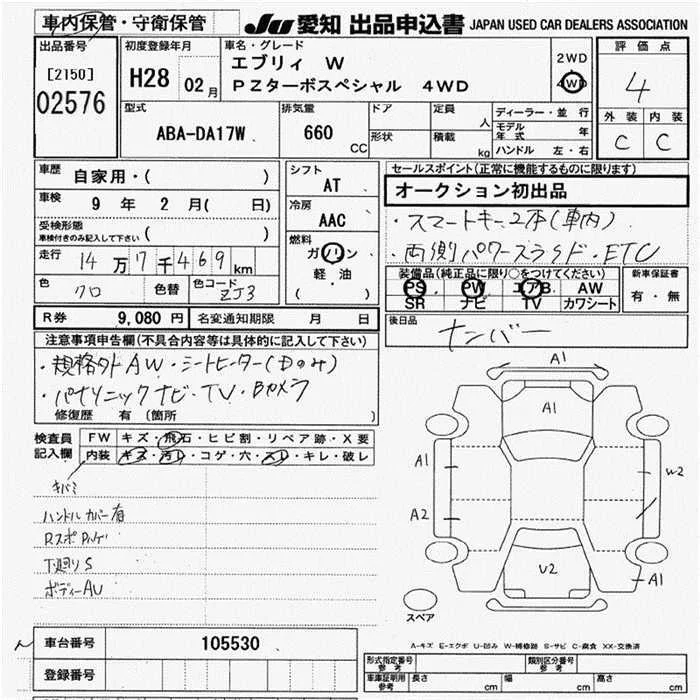 車内保管・守衛保管
JU 愛知 出品申込書 JAPAN USED CAR DEALERS ASSOCIATION
出品番号
[2150]
02576
初度登録年月
H28 02月
車名・グレード
エブリィ W
PZターボスペシャル 4WD
2WD
4WD
評価点
4
外装 内装
C C
型式
ABA-DA17W
排気量
660 CC
ドア
形状
定員 人
積載 kg
ディーラー・並行
モデル年式
ハンドル 左・右
車歴
自家用・( )
車検
9年 2月( 日)
受検形態
車検付きのみ記入して下さい ( )
走行
14万7千469km
色 クロ 色替 色コード ZJ3
シフト
AT
冷房
AAC
燃料
ガソリン
軽・油
( )
セールスポイント(正常に機能するものに限ります)
オークション初出品
・スマートキー2本(車内)
・両側パワースライド・ETC
装備品(純正品に限り○をつけてください)
PS PW エアB. AW
SR ナビ TV カワシート
新車保証書
有・無
後日品
ナンバー
R券 9,080円 名変通知期限 月 日
注意事項申告欄(不具合内容等は具体的に記入して下さい)
・規格外AW・シートヒーター(Dのみ)
・パナソニックナビ・TV・Bカメラ
修復歴 有(箇所 )
検査員
記入欄
FW キズ・飛石・ヒビ割・リペア跡・X要
内装 キズ・汚レ・コゲ・穴・スレ・キレ・破レ
キバミ
ハンドルカバー有
下廻りS
ボディーAU
A1
A1
A1
A2
W2
U2
A1
スペア
A-キズ E-エクボ U-凹み W-補修跡 S-サビ C-腐食 XX-交換済
車台番号 105530
登録番号
形式指定番号 参考
類別区分番号 参考
車庫証明用 参考
長さ cm
幅 cm
高さ cm